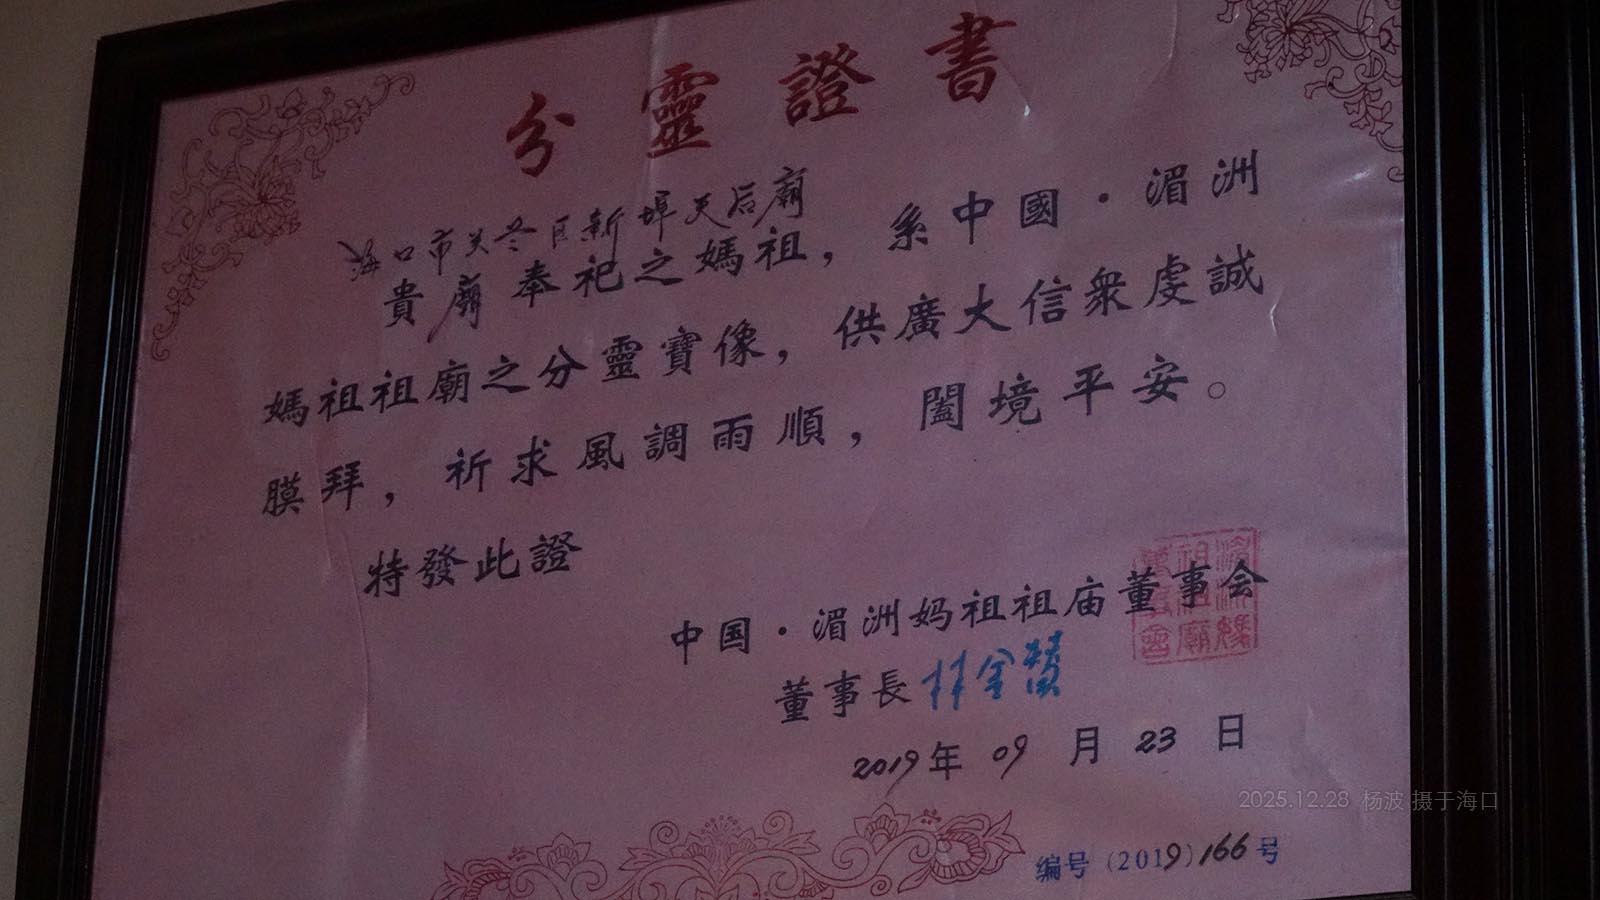 分靈證書
海口市美兰区新埠天后廟
貴廟奉祀之媽祖，系中國·湄洲
媽祖祖廟之分靈寶像，供廣大信衆虔誠
膜拜，祈求風調雨順，闔境平安。
特發此證
中国·湄洲妈祖祖庙董事会
湄洲媽祖祖廟董事會
董事長林金贊
2019年09月23日
2025.12.28 杨波 摄于海口
编号（2019）166号